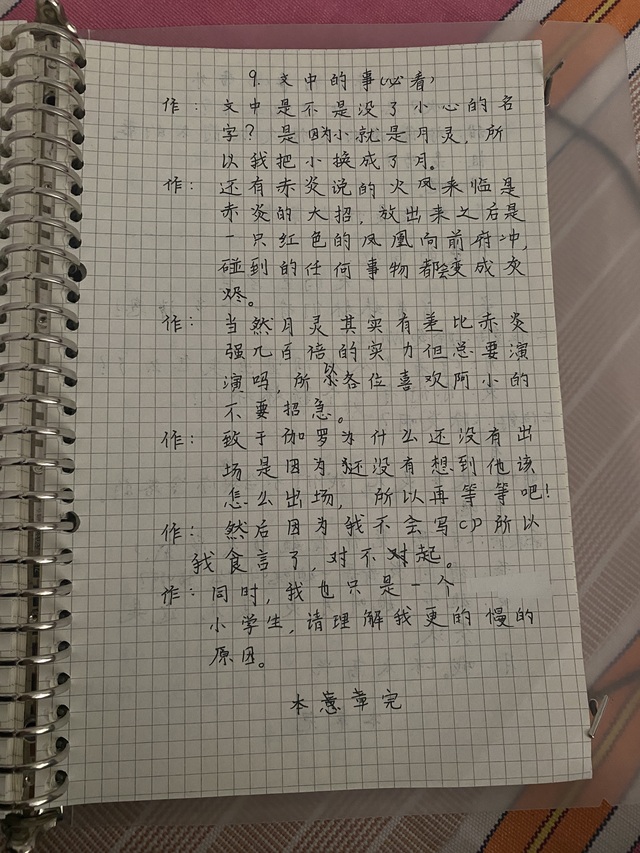 9. 文中的事(必看)
作: 文中是不是没了小心的名
字? 是因为小就是月灵, 所
以我把小换成了月。
作: 还有赤炎说的火凤来临是
赤炎的大招, 放出来之后是
一只红色的凤凰向前府冲,
碰到的任何事物都会变成灰
烬。
作: 当然月灵其实有差比赤炎
强几百倍的实力但总要演
演吗, 所以各位喜欢阿小的
不要招急。
作: 致于伽罗为什么还没有出
场是因为还没有想到他该
怎么出场, 所以再等等吧!
作: 然后因为我不会写cp所以
我食言了, 对不对起。
作: 同时, 我也只是一个
小学生, 请理解我更的慢的
原因。
本章完